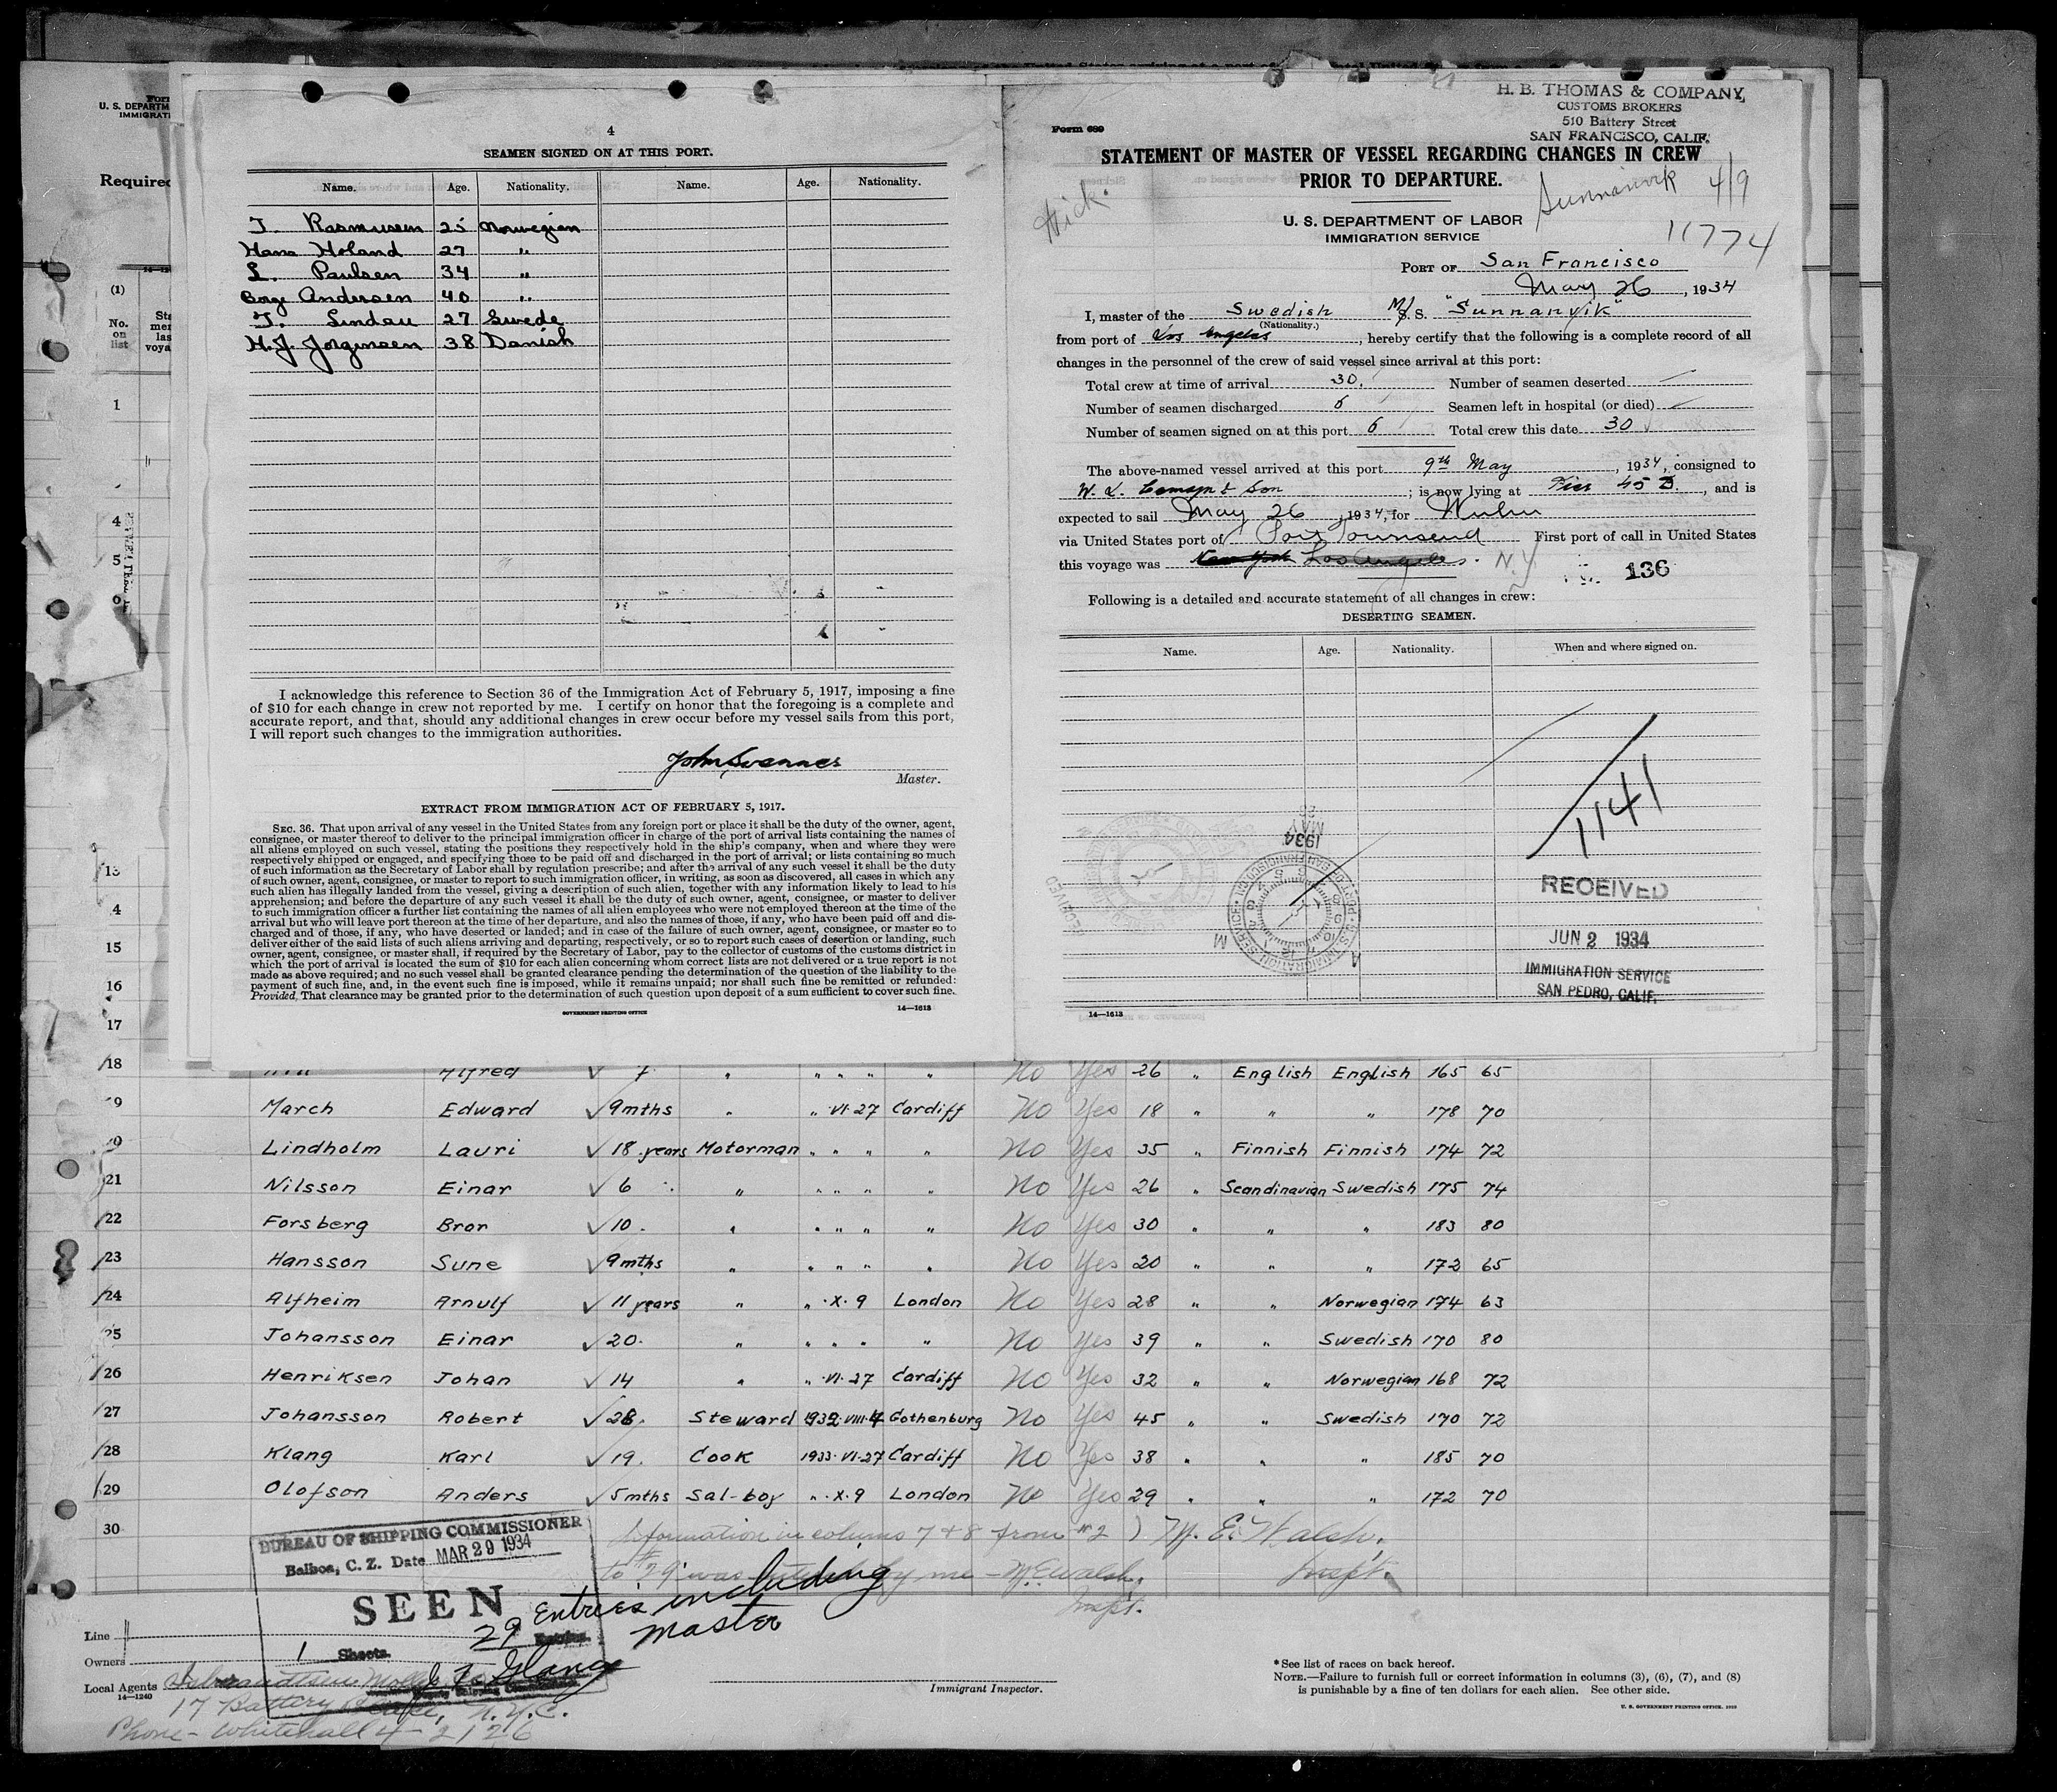 4
SEAMEN SIGNED ON AT THIS PORT.
Name. Age. Nationality. Name. Age. Nationality.
T. Rasmusen 25 Norwegian
Hans Holand 27 "
L. Paulsen 34 "
Borge Andersen 40 "
T. Lindau 27 Swede
H.J. Jorgensen 38 Danish
I acknowledge this reference to Section 36 of the Immigration Act of February 5, 1917, imposing a fine
of $10 for each change in crew not reported by me. I certify on honor that the foregoing is a complete and
accurate report, and that, should any additional changes in crew occur before my vessel sails from this port,
I will report such changes to the immigration authorities.
John Svenner
Master.
EXTRACT FROM IMMIGRATION ACT OF FEBRUARY 5, 1917.
SEC. 36. That upon arrival of any vessel in the United States from any foreign port or place it shall be the duty of the owner, agent,
consignee, or master thereof to deliver to the principal immigration officer in charge of the port of arrival lists containing the names of
all aliens employed on such vessel, stating the positions they respectively hold in the ship's company, when and where they were
respectively shipped or engaged, and specifying those to be paid off and discharged in the port of arrival; or lists containing so much
of such information as the Secretary of Labor shall by regulation prescribe; and after the arrival of any such vessel it shall be the duty
of such owner, agent, consignee, or master to report to such immigration officer, in writing, as soon as discovered, all cases in which any
such alien has illegally landed from the vessel, giving a description of such alien, together with any information likely to lead to his
apprehension; and before the departure of any such vessel it shall be the duty of such owner, agent, consignee, or master to deliver
to such immigration officer a further list containing the names of all alien employees who were not employed thereon at the time of the
arrival but who will leave port thereon at the time of her departure, and also the names of those, if any, who have been paid off and dis-
charged and of those, if any, who have deserted or landed; and in case of the failure of such owner, agent, consignee, or master so to
deliver either of the said lists of such aliens arriving and departing, respectively, or so to report such cases of desertion or landing, such
owner, agent, consignee, or master shall, if required by the Secretary of Labor, pay to the collector of customs of the customs district in
which the port of arrival is located the sum of $10 for each alien concerning whom correct lists are not delivered or a true report is not
made as above required; and no such vessel shall be granted clearance pending the determination of the question of the liability to the
payment of such fine, and, in the event such fine is imposed, while it remains unpaid; nor shall such fine be remitted or refunded:
Provided, That clearance may be granted prior to the determination of such question upon deposit of a sum sufficient to cover such fine.
GOVERNMENT PRINTING OFFICE 14—1613
H. B. THOMAS & COMPANY,
CUSTOMS BROKERS
510 Battery Street
SAN FRANCISCO, CALIF.
Form 689
STATEMENT OF MASTER OF VESSEL REGARDING CHANGES IN CREW
PRIOR TO DEPARTURE.
Sunnanvik 4/9
Hick
U. S. DEPARTMENT OF LABOR
IMMIGRATION SERVICE
11774
PORT OF San Francisco
May 26, 1934
I, master of the Swedish M/S. S. "Sunnanvik"
(Nationality.)
from port of Los Angeles, hereby certify that the following is a complete record of all
changes in the personnel of the crew of said vessel since arrival at this port:
Total crew at time of arrival 30. Number of seamen deserted
Number of seamen discharged 6 Seamen left in hospital (or died)
Number of seamen signed on at this port 6 Total crew this date 30
The above-named vessel arrived at this port 9th May, 1934, consigned to
W. L. & Son; is now lying at Pier 45 D., and is
expected to sail May 26, 1934, for Wuhu
via United States port of Port Townsend First port of call in United States
this voyage was New York Los Angeles. N.Y.
136
Following is a detailed and accurate statement of all changes in crew:
DESERTING SEAMEN.
Name. Age. Nationality. When and where signed on.
1141
MAY
1934
U.S. IMMIGRATION SERVICE PORT OF SAN FRANCISCO
RECEIVED
JUN 2 1934
IMMIGRATION SERVICE
SAN PEDRO, CALIF.
14—1613
U. S. DEPARTM
IMMIGRATI
Required
(1)
No.
on
list
1
4
5
6
13
4
15
16
17
18 Alfred 7 " " " " " No Yes 26 " English English 165 65
19 March Edward 9 mths " " VI·27 Cardiff No Yes 18 " " " 178 70
20 Lindholm Lauri 18 years Motorman " " " " No Yes 35 " Finnish Finnish 174 72
21 Nilsson Einar 6 " " " " " " No Yes 26 " Scandinavian Swedish 175 74
22 Forsberg Bror 10 . " " " " " No Yes 30 " " " 183 80
23 Hansson Sune 9 mths " " " " " No Yes 20 " " " 172 65
24 Alfheim Arnulf 11 years " " ·X·9 London No Yes 28 " " Norwegian 174 63
25 Johansson Einar 20. " " " " " No Yes 39 " " Swedish 170 80
26 Henriksen Johan 14 " " ·VI·27 Cardiff No Yes 32 " " Norwegian 168 72
27 Johansson Robert 28. Steward 1932·VIII·4 Gothenburg No Yes 45 " " Swedish 170 72
28 Klang Karl 19. Cook 1933·VI·27 Cardiff No Yes 38 " " " 185 70
29 Olofson Anders 5 mths Sal-boy " ·X·9 London No Yes 29 " " " 172 70
30 Information in colums 7 & 8 from #2 ) M. E. Walsh,
to #29 was by me — M.E. Walsh, Inspt.
Inspt.
BUREAU OF SHIPPING COMMISSIONER
Balboa, C. Z. Date MAR 29 1934
SEEN
1 Sheets. 29 Entries including
master
Line
Owners
Local Agents
14—1240
17 Battery Place, N.Y.C.
Phone — Whitehall 4-2126
Immigrant Inspector.
*See list of races on back hereof.
NOTE.—Failure to furnish full or correct information in columns (3), (6), (7), and (8)
is punishable by a fine of ten dollars for each alien. See other side.
U. S. GOVERNMENT PRINTING OFFICE